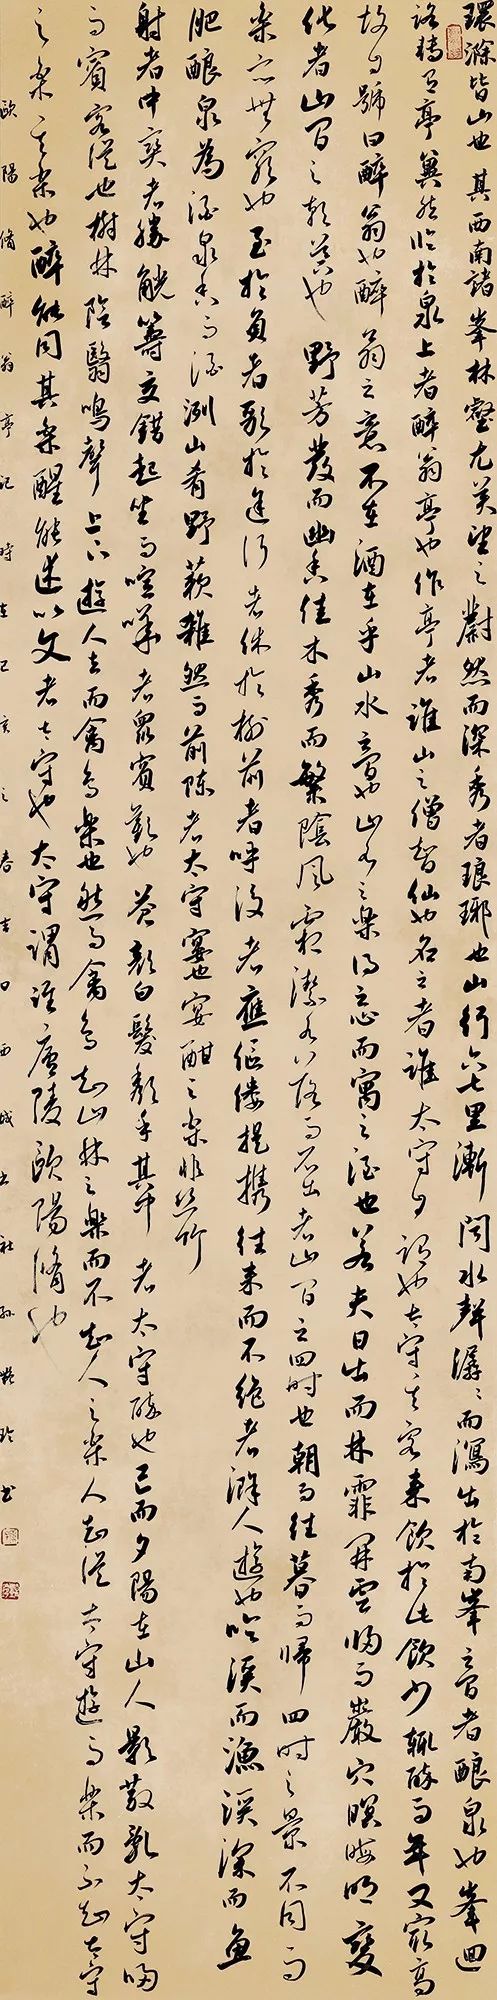 環滁皆山也其西南諸峯林壑尤美望之蔚然而深秀者瑯琊也山行六七里漸聞水聲潺〻而瀉出於南峯之間者釀泉也峯迴
路轉有亭翼然臨於泉上者醉翁亭也作亭者誰山之僧智仙也名之者誰太守自謂也太守與客來飲於此飲少輒醉而年又最高
故自號曰醉翁也醉翁之意不在酒在乎山水之間也山水之樂得之心而寓之酒也若夫日出而林霏開雲歸而巖穴暝晦明變
化者山間之朝暮也野芳發而幽香佳木秀而繁陰風霜潔水落而石出者山間之四時也朝而往暮而歸四時之景不同而
樂亦無窮也至於負者歌於途行者休於樹前者呼後者應傴僂提攜往來而不絕者滁人遊也臨溪而漁溪深而魚
肥釀泉為酒泉香而酒洌山肴野蔌雜然而前陳者太守宴也宴酣之樂非絲竹
射者中奕者勝觥籌交錯起坐而喧嘩者眾賓歡也蒼顏白髮頹乎其中者太守醉也已而夕陽在山人影散亂太守歸
而賓客從也樹林陰翳鳴聲上下遊人去而禽鳥樂也然而禽鳥知山林之樂而不知人之樂人知從太守遊而樂而不知太守
之樂其樂也醉能同其樂醒能述以文者太守也太守謂誰廬陵歐陽脩也
歐陽脩醉翁亭記時在己亥之春吉日西城書社孫艷玲書